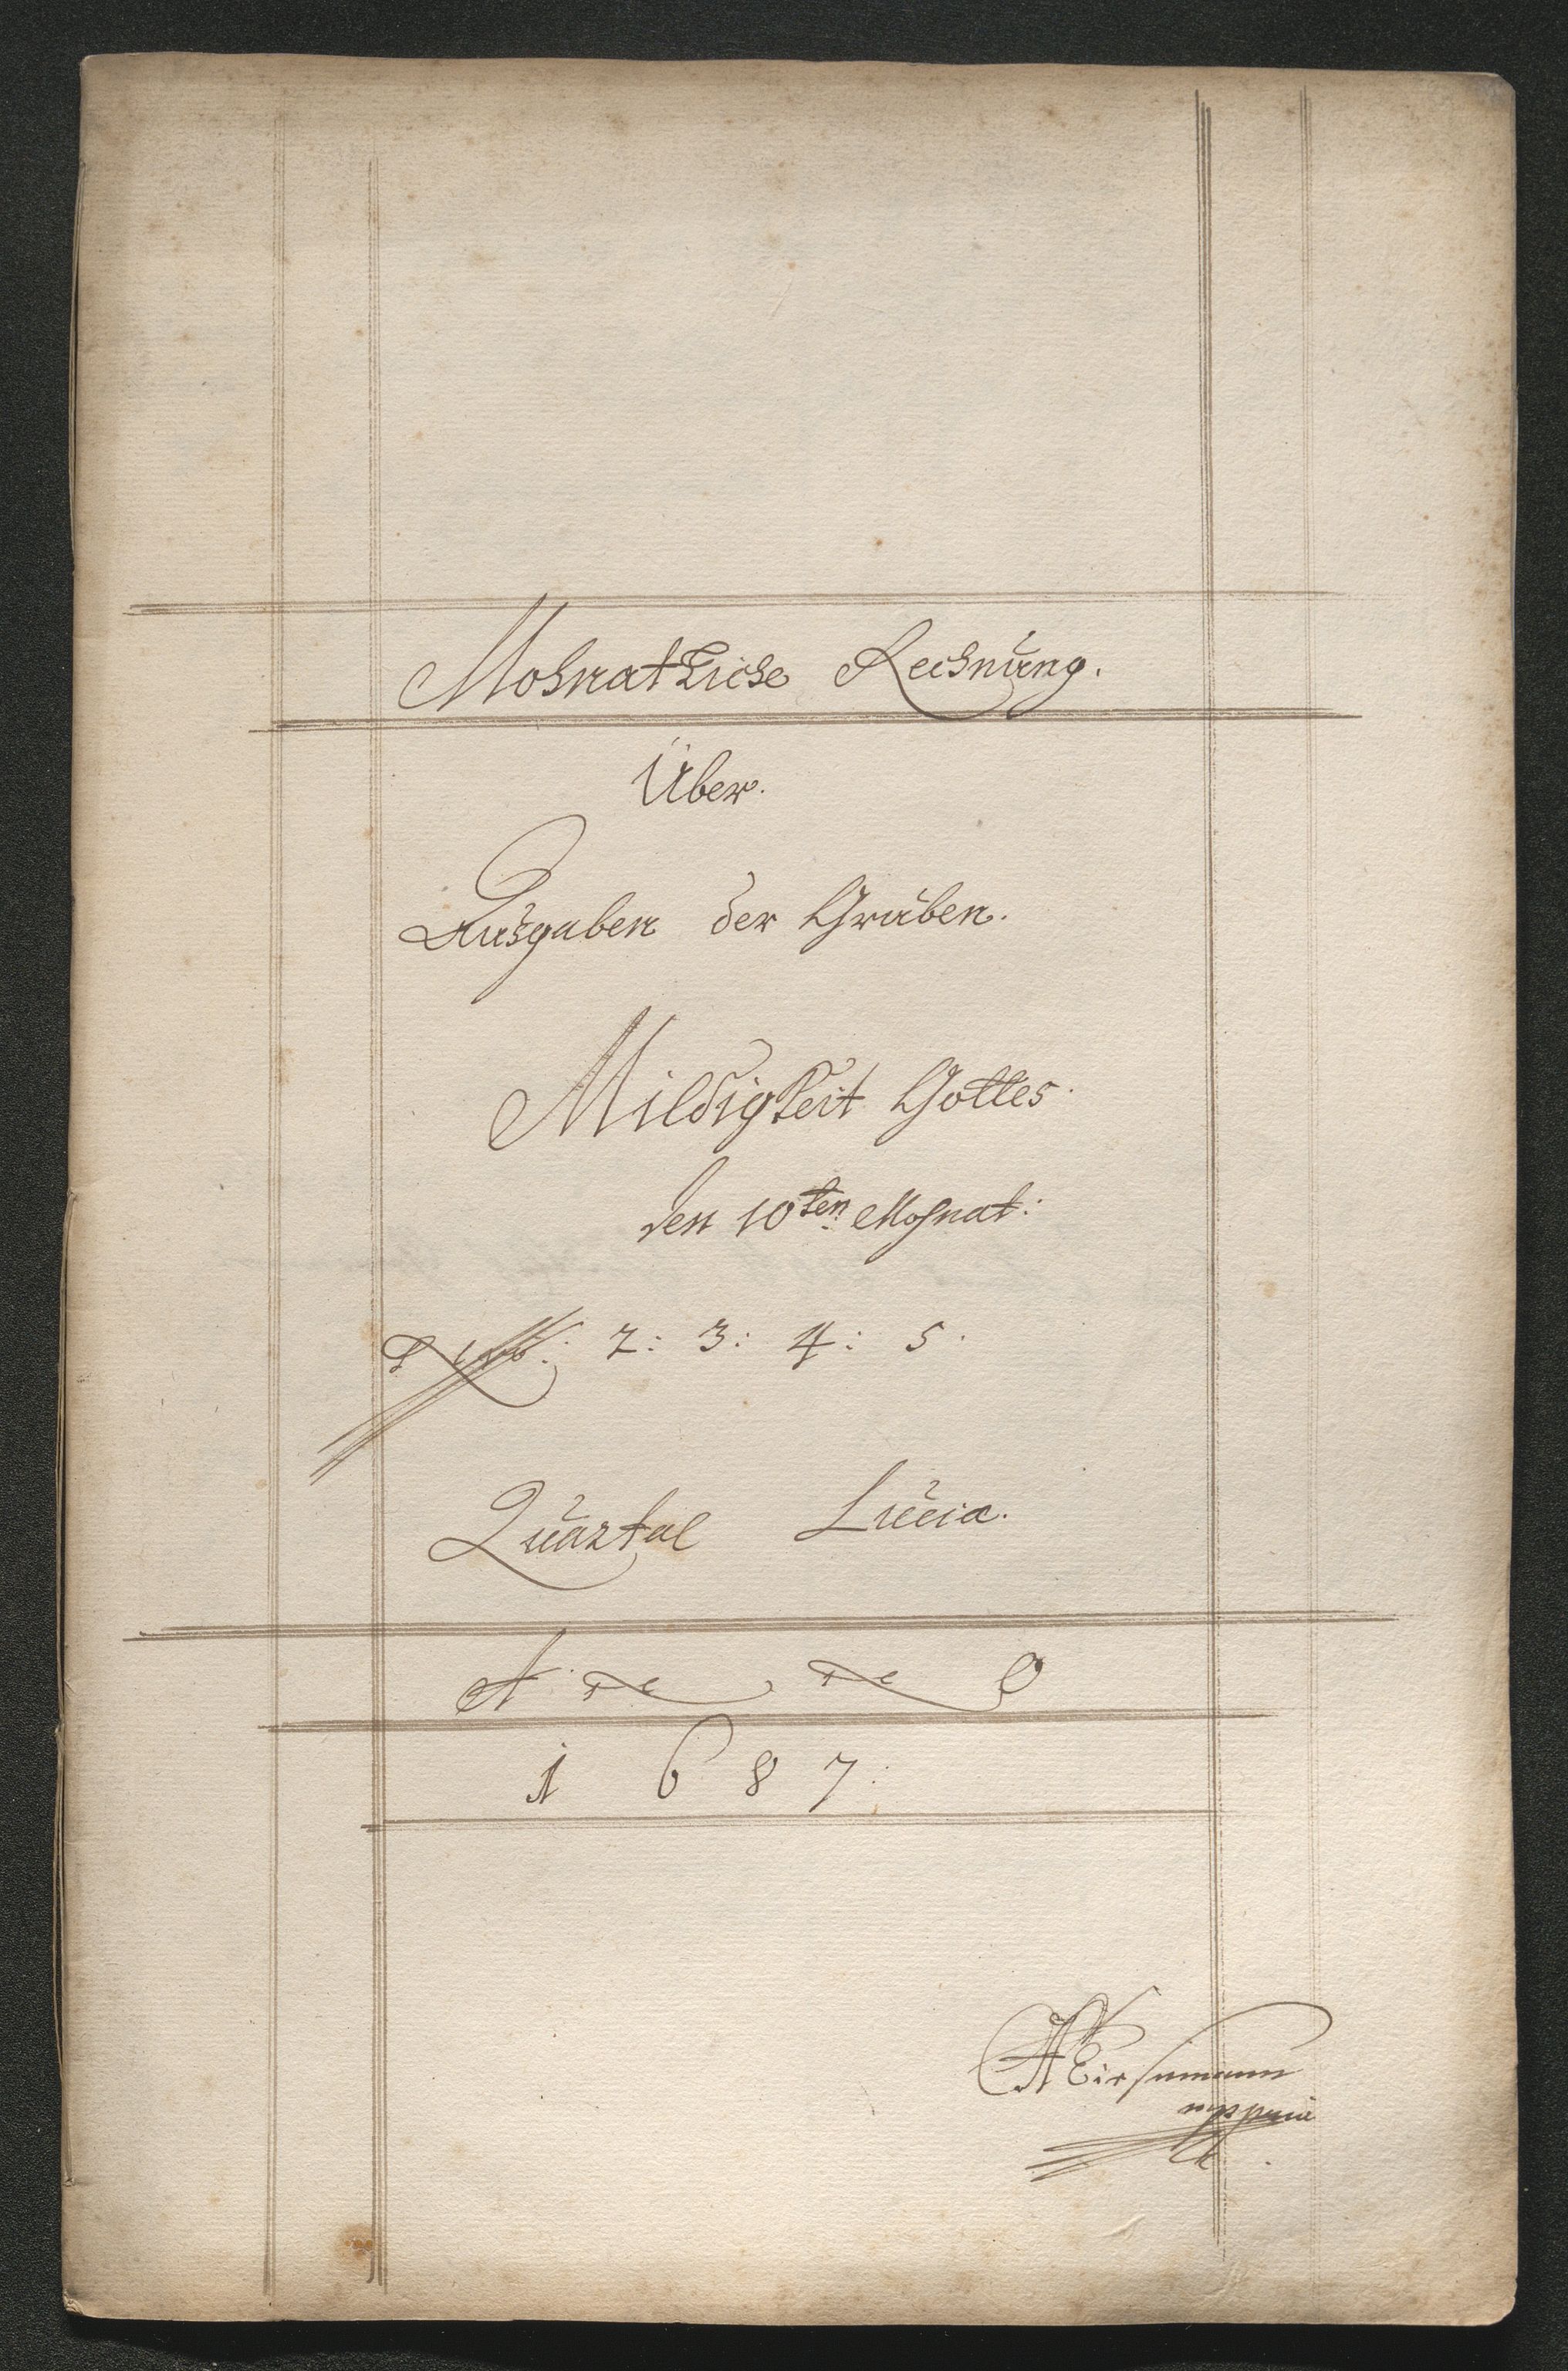 Mohnatliche Rechnung.
Über.
Ausgaben der Gruben.
Mildigkeit Gottes.
den 10ten Mohnat:
2: 3: 4: 5.
Quartal Lucia.
A n n o
1 6 8 7.